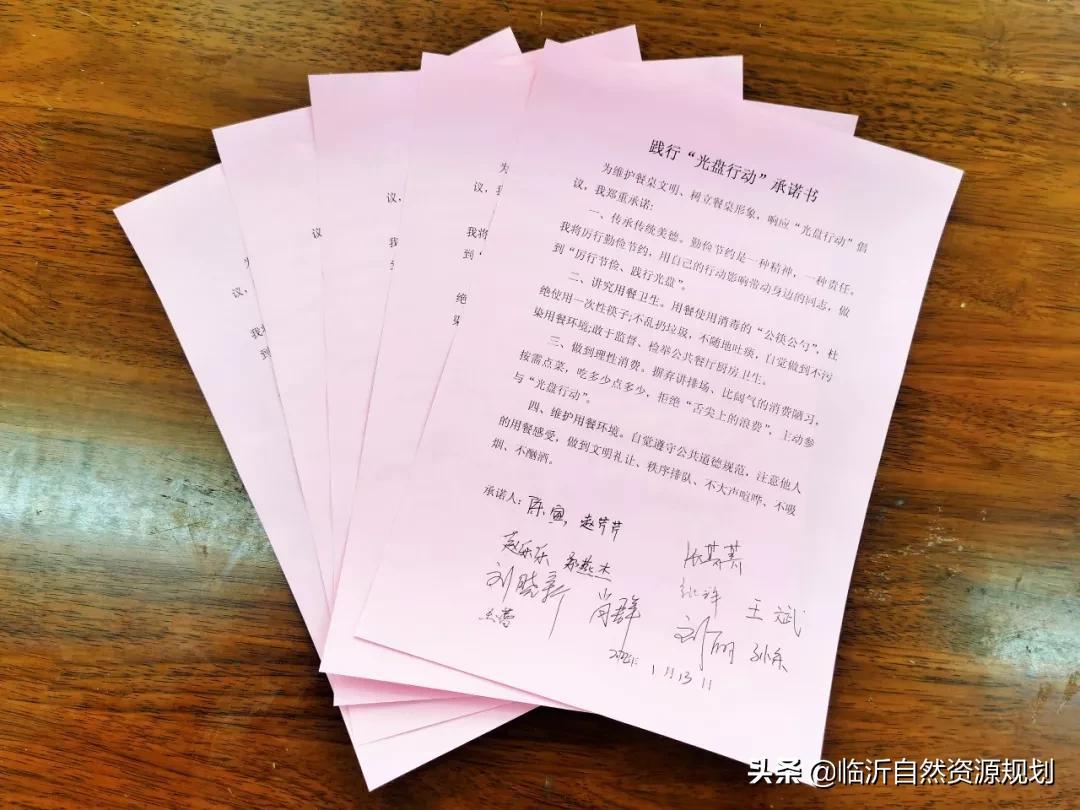 践行“光盘行动”承诺书
为维护餐桌文明、树立餐桌形象，响应“光盘行动”倡
议，我郑重承诺:
一、传承传统美德。勤俭节约是一种精神，一种责任。
我将厉行勤俭节约，用自己的行动影响带动身边的同志，做
到“厉行节俭、践行光盘”。
二、讲究用餐卫生。用餐使用消毒的“公筷公勺”，杜
绝使用一次性筷子;不乱扔垃圾，不随地吐痰，自觉做到不污
染用餐环境;敢于监督、检举公共餐厅厨房卫生。
三、做到理性消费。摒弃讲排场、比阔气的消费陋习，
按需点菜，吃多少点多少，拒绝“舌尖上的浪费”，主动参
与“光盘行动”。
四、维护用餐环境。自觉遵守公共道德规范，注意他人
的用餐感受，做到文明礼让、秩序排队、不大声喧哗、不吸
烟、不酗酒。
承诺人：陈寅，赵芹芹
赵乐乐
刘晓新 肖群 王斌
刘丽
1月13日
为
议，我
我将
到“
绝
染
议，
我
议
我
到
议，
我
到
头条 @临沂自然资源规划